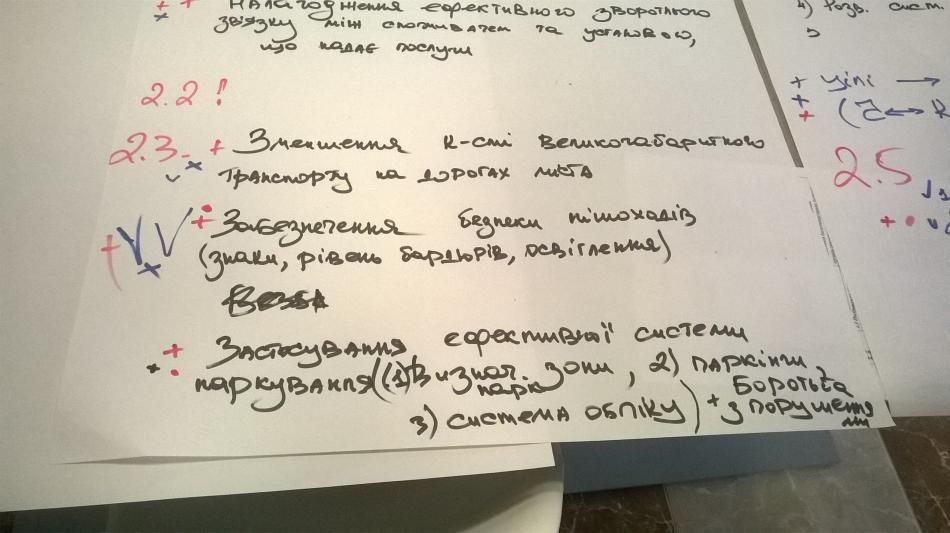 Налагодження ефективного зворотнього
зв'язку між споживачем та установою,
що надає послуги
2.2 !
2.3. + Зменшення к-сті великогабаритного
транспорту на дорогах міста
+ Забезпечення безпеки пішоходів
(знаки, рівень бардюрів, освітлення)
+ Застосування ефективної системи
паркування (1) Визнач. парк. зони, 2) паркінги,
3) система обліку) + Боротьба
з порушення
ми
4) Розв. сист.
+ цілі →
2.5